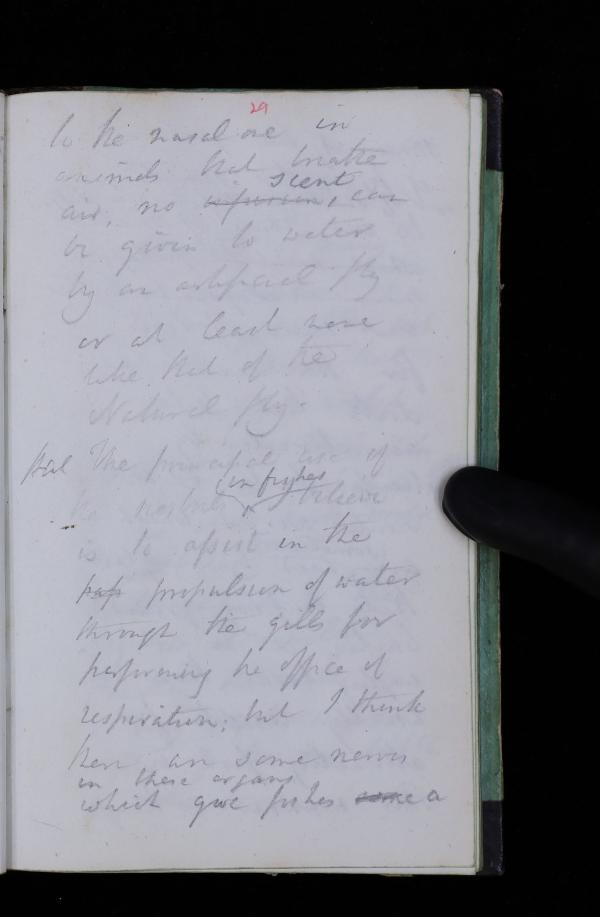 29
to the nasal one in
animals that breathe
scent
air, no infusion, can
be given to water
by an artificial fly
or at least none
like that of the
Natural fly.
Hal The principal use of
in fishes
the nostrils I believe
is to assist in the
pap propulsion of water
through the gills for
performing the office of
respiration; but I think
there are some nerves
in these organs
which give fishes some a